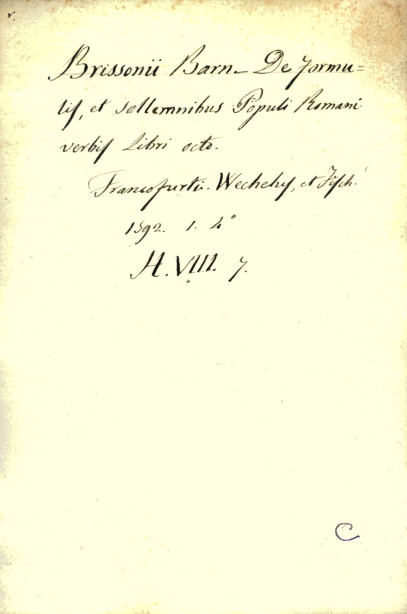 Brissonii Barn. De formu=
lis, et sollemnibus Populi Romani
verbis Libri octo.
Francofurtii. Wechelus, et Fisch.
1592. 1. 4°
H. VIII. 7.
C